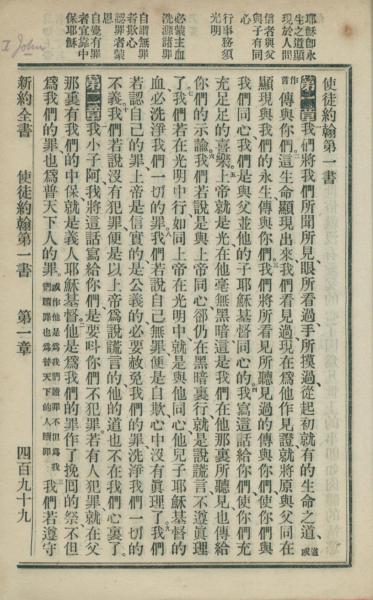 I John
耶穌卽永
生之道顯
現於人間
信者與父
與子有同
心
行事務須
光明
必藉主血
洗滌諸罪
自謂無罪
者欺心
認罪者蒙
恩
自覺有罪
者宜靠中
保耶穌
使徒約翰第一書
第一章我們將我們所聞所見眼所看過手所摸過從起初就有的生命之道道或
作言傳與你們這生命顯現出來我們看見過現在爲他作見證就將原與父同在
顯現與我們的永生傳與你們我們將所看見所聽見過的傳與你們使你們與
我們同心我們是與父並他的子耶穌基督同心的我寫這話給你們使你們充
充足足的喜樂上帝就是光在他毫無黑暗這是我們在他那裏所聽見也傳給
你們的示諭我們若說是與上帝同心卻仍在黑暗裏行就是說謊言不遵眞理
了我們若在光明中行如同上帝在光明中就是與他同心他兒子耶穌基督的
血必洗淨我們一切的罪我們若說自己無罪便是自欺心中沒有眞理了我們
若認自己的罪上帝是信實的是公義的必要赦免我們的罪洗淨我們一切的
不義我們若說沒有犯罪便是以上帝爲說謊言的他的道也不在我們心裏了
第二章我小子阿我將這話寫給你們是要叫你們不犯罪若有人犯罪就在父
那裏有我們的中保就是義人耶穌基督他是爲我們的罪作了挽回的祭不但
爲我們的罪也爲普天下人的罪或作他是爲我們贖罪不但爲我們贖罪也爲普天下的人贖罪我們若遵守
新約全書　使徒約翰第一書　第一章　四百九十九